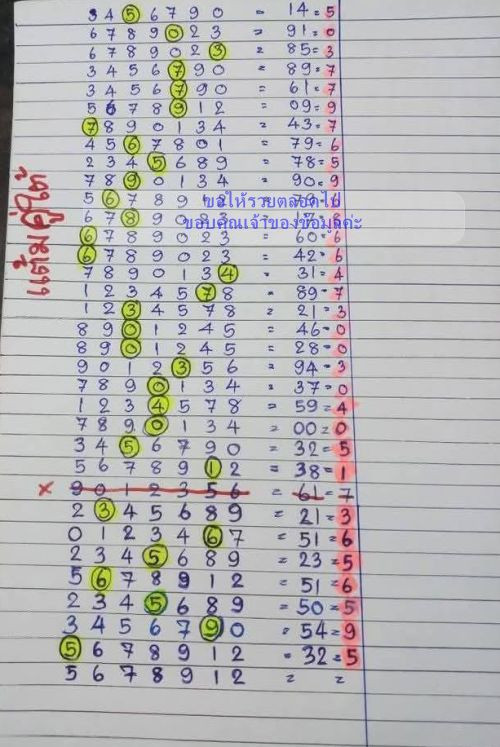 3 4 5 6 7 9 0 = 14 = 5
6 7 8 9 0 2 3 = 91 = 0
6 7 8 9 0 2 3 = 85 = 3
3 4 5 6 7 9 0 = 89 = 7
3 4 5 6 7 9 0 = 61 = 7
5 6 7 8 9 1 2 = 09 = 9
7 8 9 0 1 3 4 = 43 = 7
4 5 6 7 8 0 1 = 79 = 6
2 3 4 5 6 8 9 = 78 = 5
7 8 9 0 1 3 4 = 90 = 9
5 6 7 8 9 1 2 = 79 = 6
ขอให้รวยตลอดไป
6 7 8 9 0 2 3 = 17 = 8
ขอบคุณเจ้าของข้อมูลค่ะ
6 7 8 9 0 2 3 = 60 = 6
6 7 8 9 0 2 3 = 42 = 6
7 8 9 0 1 3 4 = 31 = 4
1 2 3 4 5 7 8 = 89 = 7
1 2 3 4 5 7 8 = 21 = 3
8 9 0 1 2 4 5 = 46 = 0
8 9 0 1 2 4 5 = 28 = 0
9 0 1 2 3 5 6 = 94 = 3
7 8 9 0 1 3 4 = 37 = 0
1 2 3 4 5 7 8 = 59 = 4
7 8 9 0 1 3 4 = 00 = 0
3 4 5 6 7 9 0 = 32 = 5
5 6 7 8 9 1 2 = 38 = 1
x 9 0 1 2 3 5 6 = 61 = 7
2 3 4 5 6 8 9 = 21 = 3
0 1 2 3 4 6 7 = 51 = 6
2 3 4 5 6 8 9 = 23 = 5
5 6 7 8 9 1 2 = 51 = 6
2 3 4 5 6 8 9 = 50 = 5
3 4 5 6 7 9 0 = 54 = 9
5 6 7 8 9 1 2 = 32 = 5
5 6 7 8 9 1 2 = =
แต้มคู่ใต้